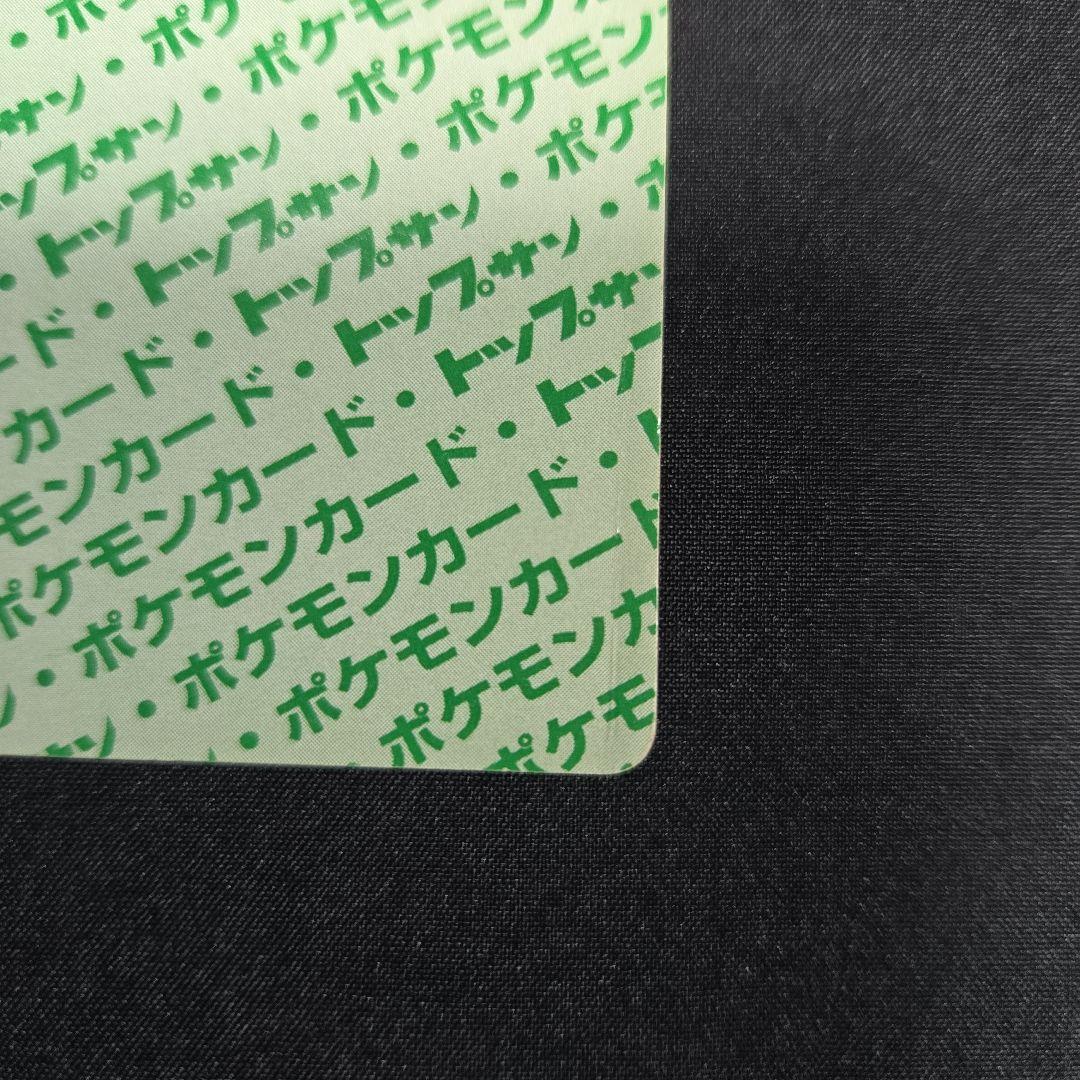 ・ポ
サン・ポケ
ップサン・ポケモ
・トップサン・ポケモン
ード・トップサン・ポケモン
カード・トップサン・ポケモ
モンカード・トップサン・ポ
ポケモンカード・トップサ
ン・ポケモンカード・トップ
サン・ポケモンカード・ト
・ポケモンカード
ポケモンカ
ポケモ